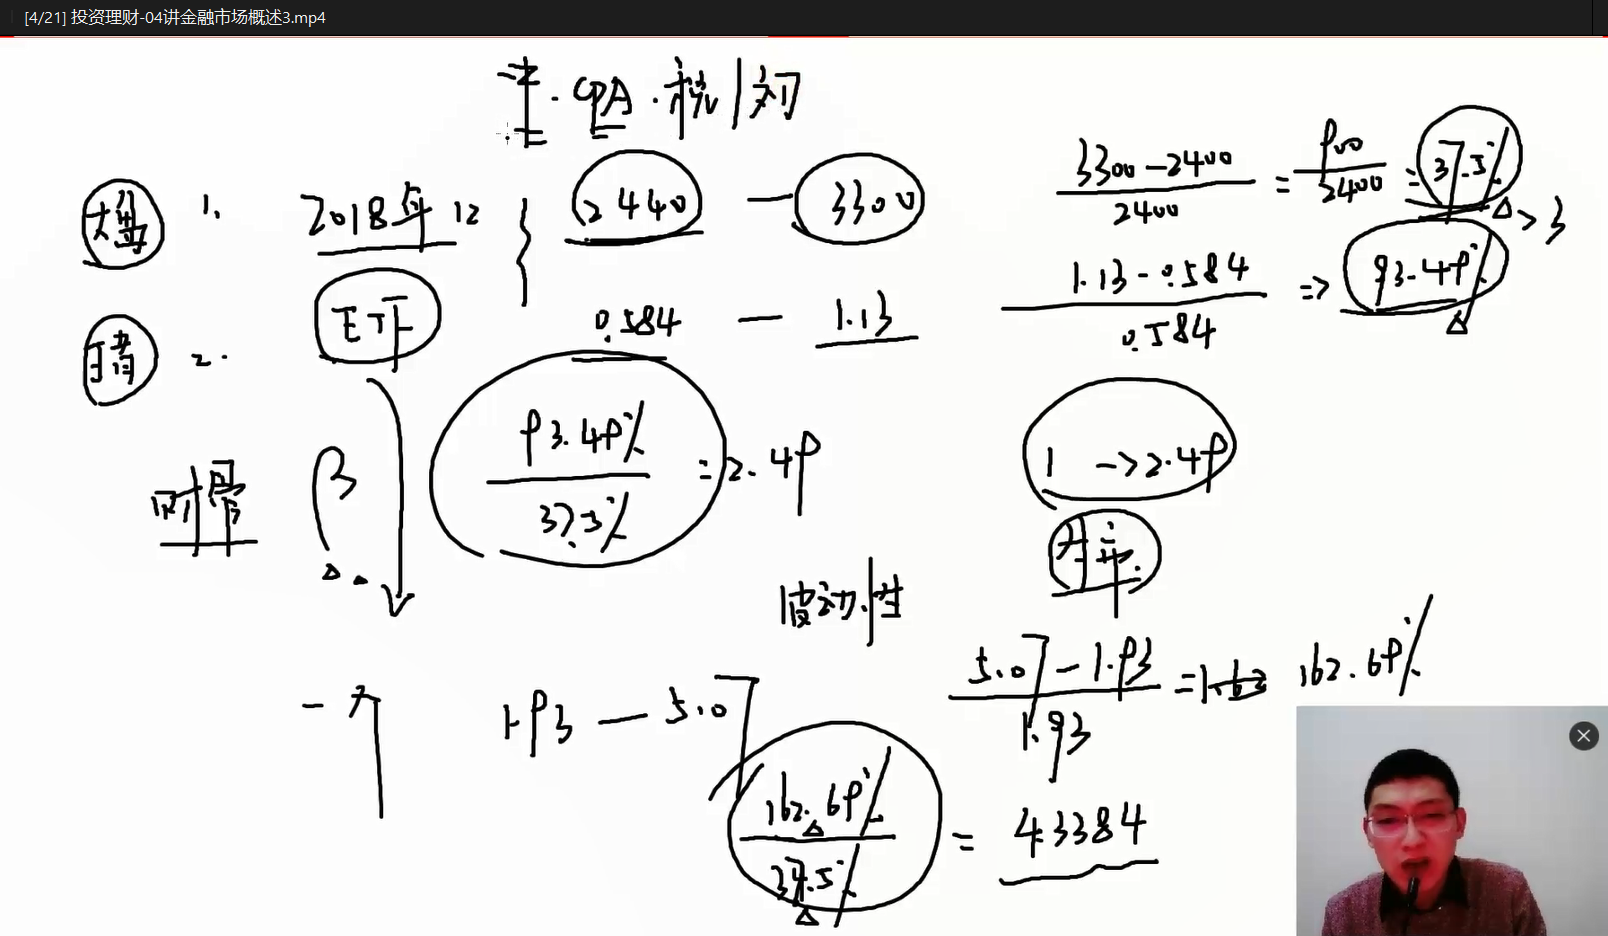 [4/21] 投资理财-04讲金融市场概述3.mp4
CPA · 税 |
大盘 1. 2018年12 2440 — 3300
3300-2400 / 2400 = 900 / 2400 = 37.5% > 3
2. ETF 0.584 — 1.13
1.13-0.584 / 0.584 => 93.49%
β 93.49% / 37.5% = 2.49
1 -> 2.49
波动性
1.93 — 5.07
5.07-1.93 / 1.93 = 1.62 162.69%
162.69% / 37.5% = 4.3384